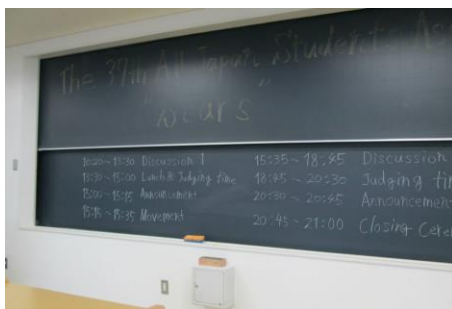 The 37th All Japan Students As
"Scars"
10:20~13:30 Discussion 1
13:30~15:00 Lunch & Judging time
15:00~15:15 Announcement
15:15~15:35 Movement
15:35~18:45 Discussion
18:45~20:30 Judging tim
20:30~20:45 Announcement
20:45~21:00 Closing Cere